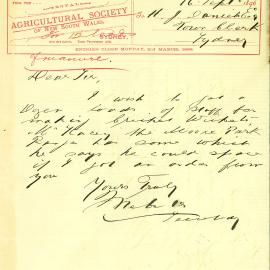 FROM THE
AGRICULTURAL SOCIETY
OF NEW SOUTH WALES,
SYDNEY,
16 Sept 1896
To H. J. Daniel Esq
Town Clerk
Sydney
ENTRIES CLOSE MONDAY, 2nd MARCH, 1896.
Dear Sir,
I wish to
loads of Stuff for
making Cricket Wickets
Mr the Moore Park
Ranger has some which
he says he could spare
if I got an order from
you
Yours Truly